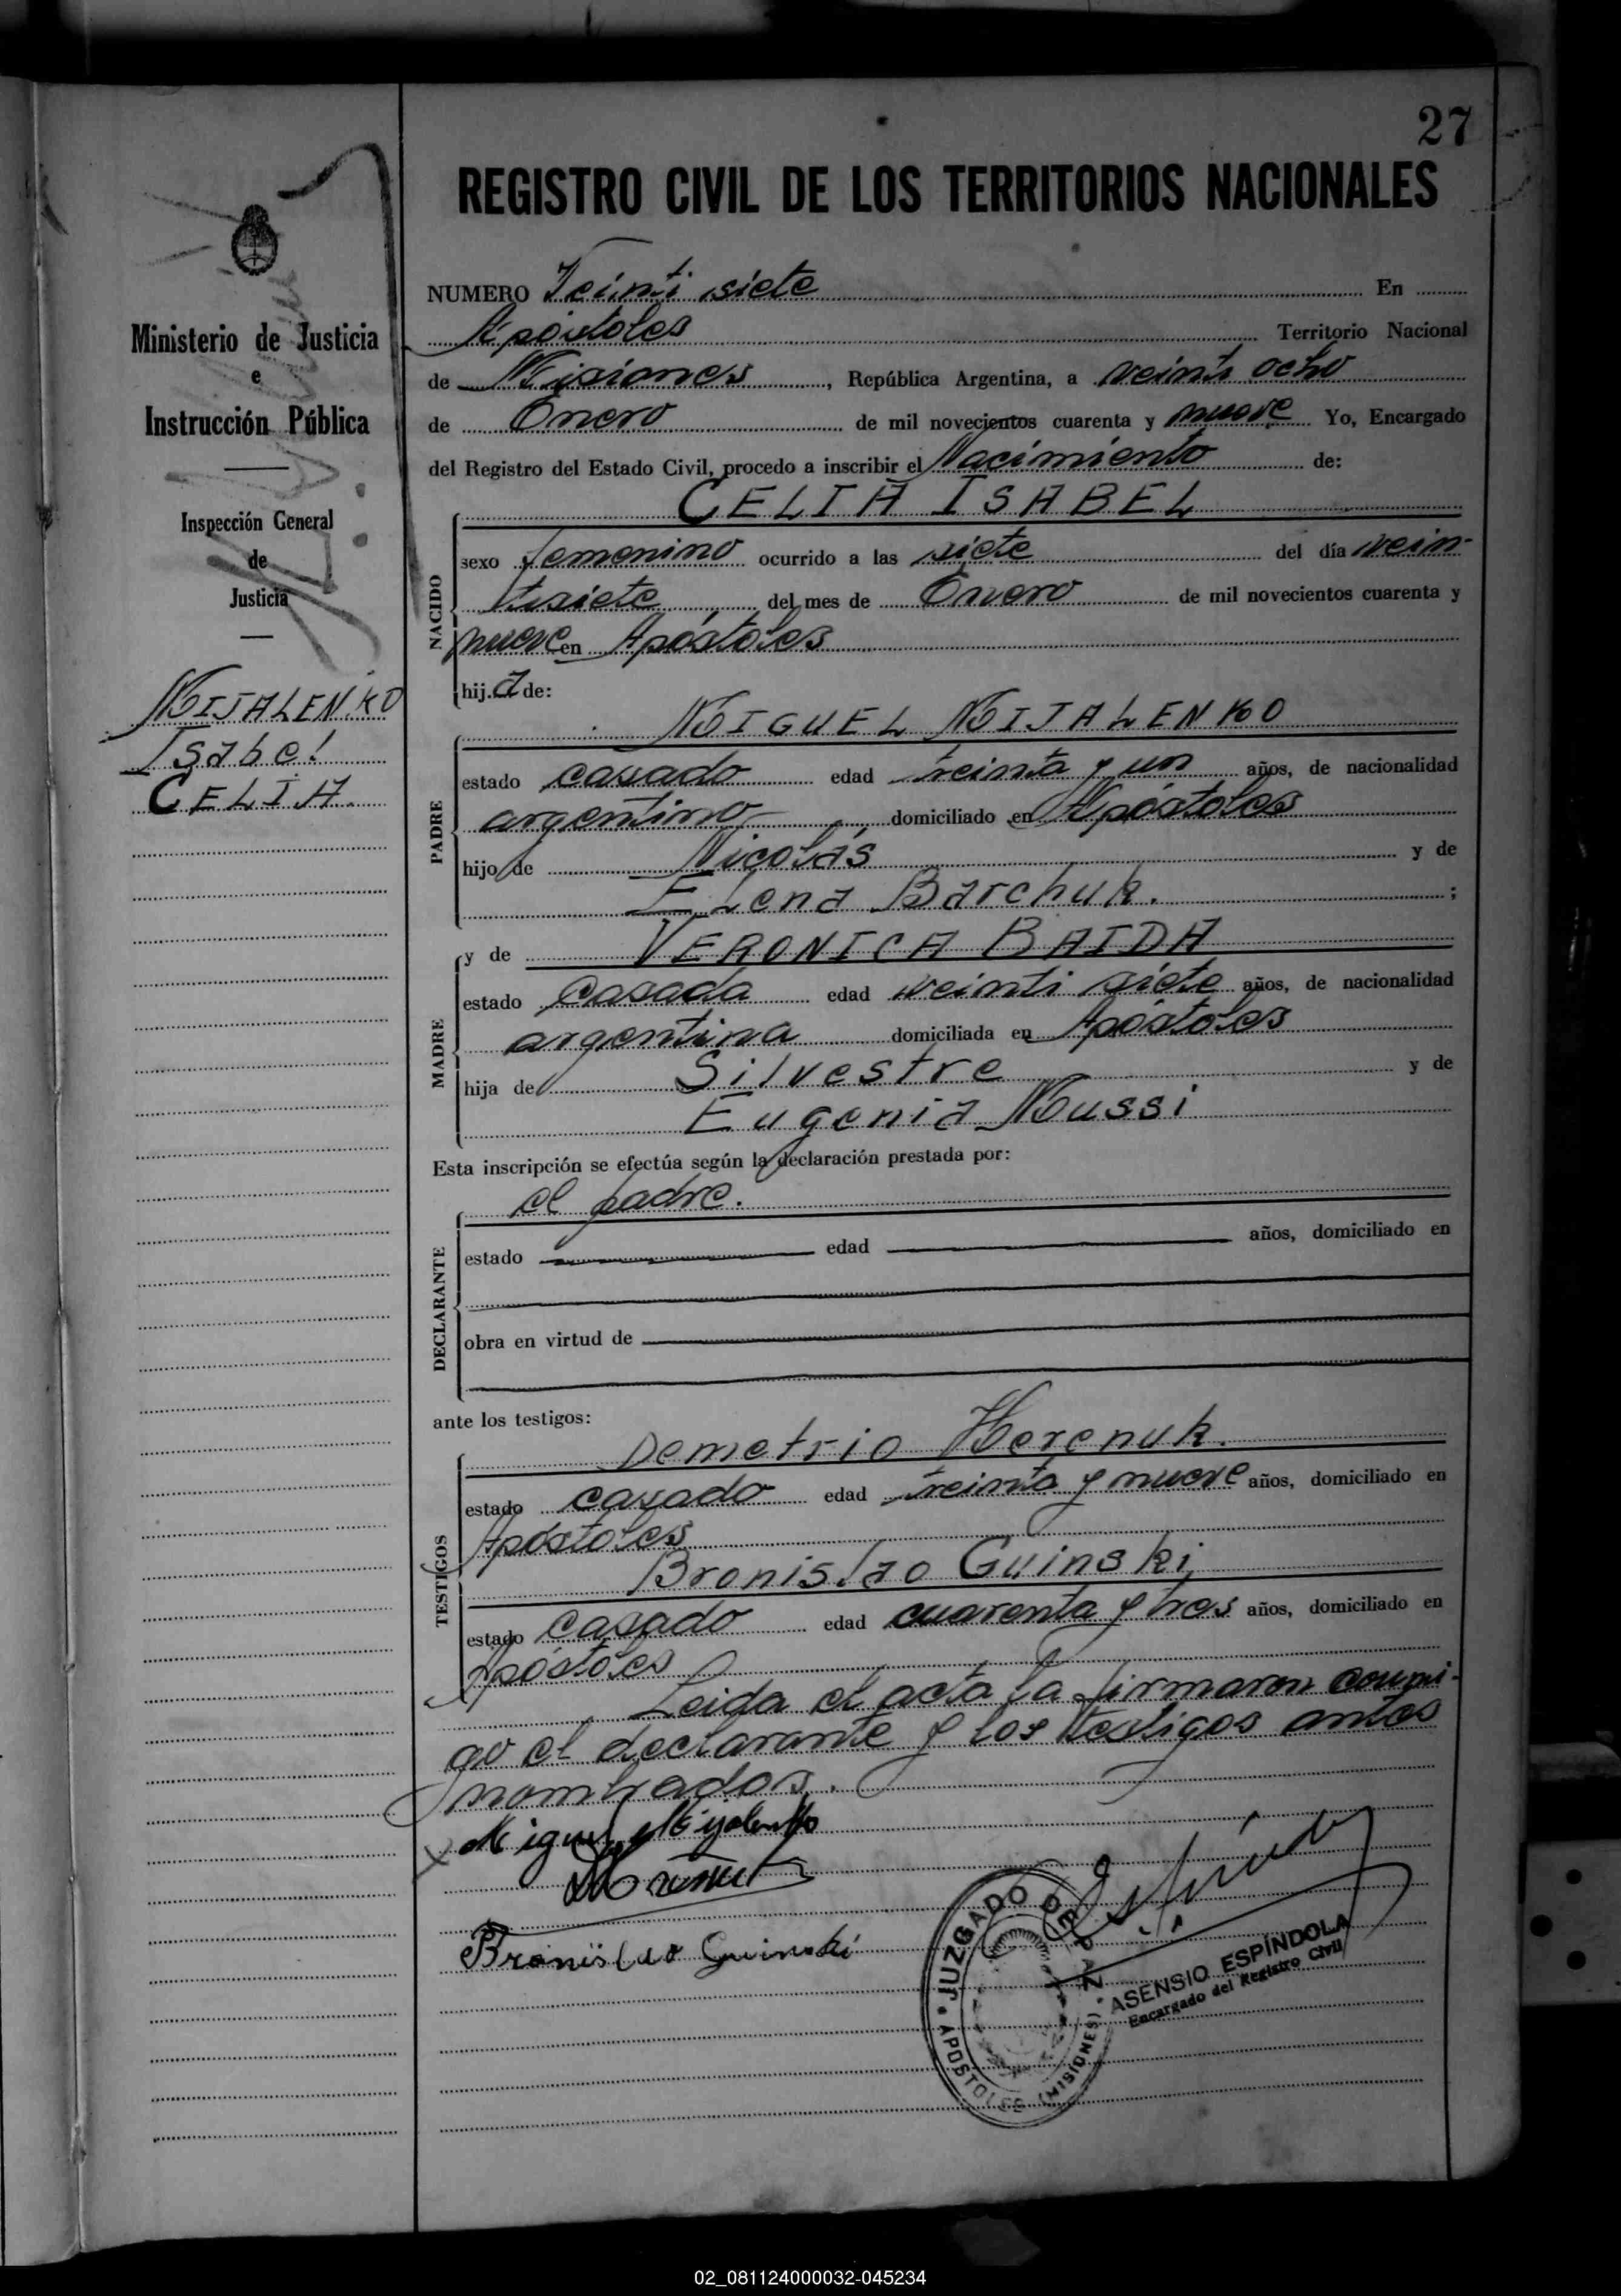 27
REGISTRO CIVIL DE LOS TERRITORIOS NACIONALES
Ministerio de Justicia
e
Instrucción Pública
Inspección General
de
Justicia
MIJALENKO
Isabel
CELIA.
NUMERO Veinti siete En
Apóstoles Territorio Nacional
de Misiones, República Argentina, a veinti ocho
de Enero de mil novecientos cuarenta y nueve Yo, Encargado
del Registro del Estado Civil, procedo a inscribir el Nacimiento de:
CELIA ISABEL
NACIDO
sexo femenino ocurrido a las siete del día vein-
tisiete del mes de Enero de mil novecientos cuarenta y
nueve en Apóstoles
hija de:
MIGUEL MIJALENKO
PADRE
estado casado edad treinta y un años, de nacionalidad
argentino domiciliado en Apóstoles
hijo de Nicolás y de
Elena Barchuk. ;
y de VERONICA BAIDA
MADRE
estado casada edad veinti siete años, de nacionalidad
argentina domiciliada en Apóstoles
hija de Silvestre y de
Eugenia Mussi
Esta inscripción se efectúa según la declaración prestada por:
el padre.
DECLARANTE
estado edad años, domiciliado en
obra en virtud de
ante los testigos:
Demetrio Herenuk.
TESTIGOS
estado casado edad treinta y nueve años, domiciliado en
Apóstoles
Bronislao Guinski,
estado casado edad cuarenta y tres años, domiciliado en
Apóstoles
Leida el acta la firmaron conmi-
go el declarante y los testigos antes
nombrados.
Miguel Mijalenko
Bronislao Guinski
JUZGADO DE PAZ
APOSTOLES (MISIONES)
ASENSIO ESPÍNDOLA
Encargado del Registro Civil
02_081124000032-045234